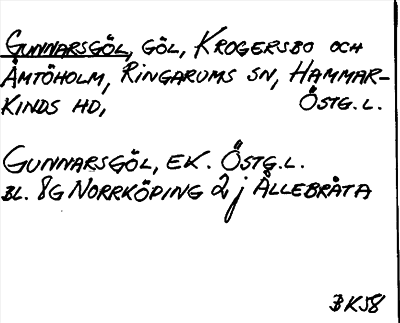 GUNNARSGÖL, GÖL, KROGERSBO OCH
ÅMTÖHOLM, RINGARUMS SN, HAMMAR-
KINDS HD, ÖSTG. L.
GUNNARSGÖL, EK. ÖSTG. L.
BL. 8G NORRKÖPING 2 j ÅLLEBRÅTA
BK58